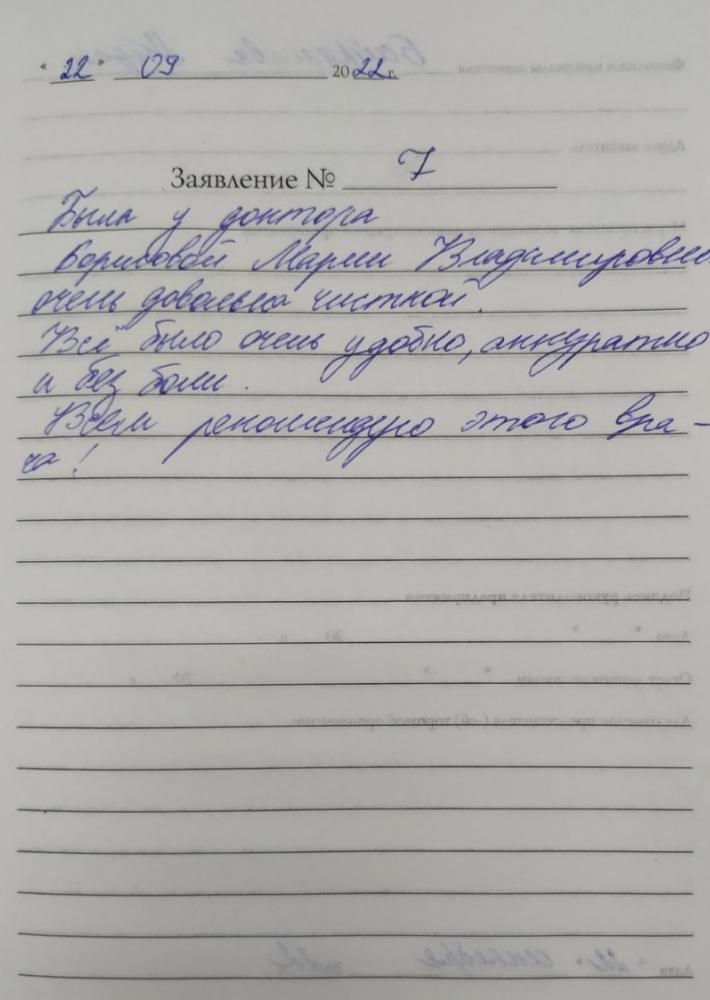 "22" 09 2022 г.
Заявление № 7
Была у доктора
Борисовой Марии Владимировны
очень довольна чисткой.
Всё было очень удобно, аккуратно
и без боли.
Всем рекомендую этого вра-
ча!